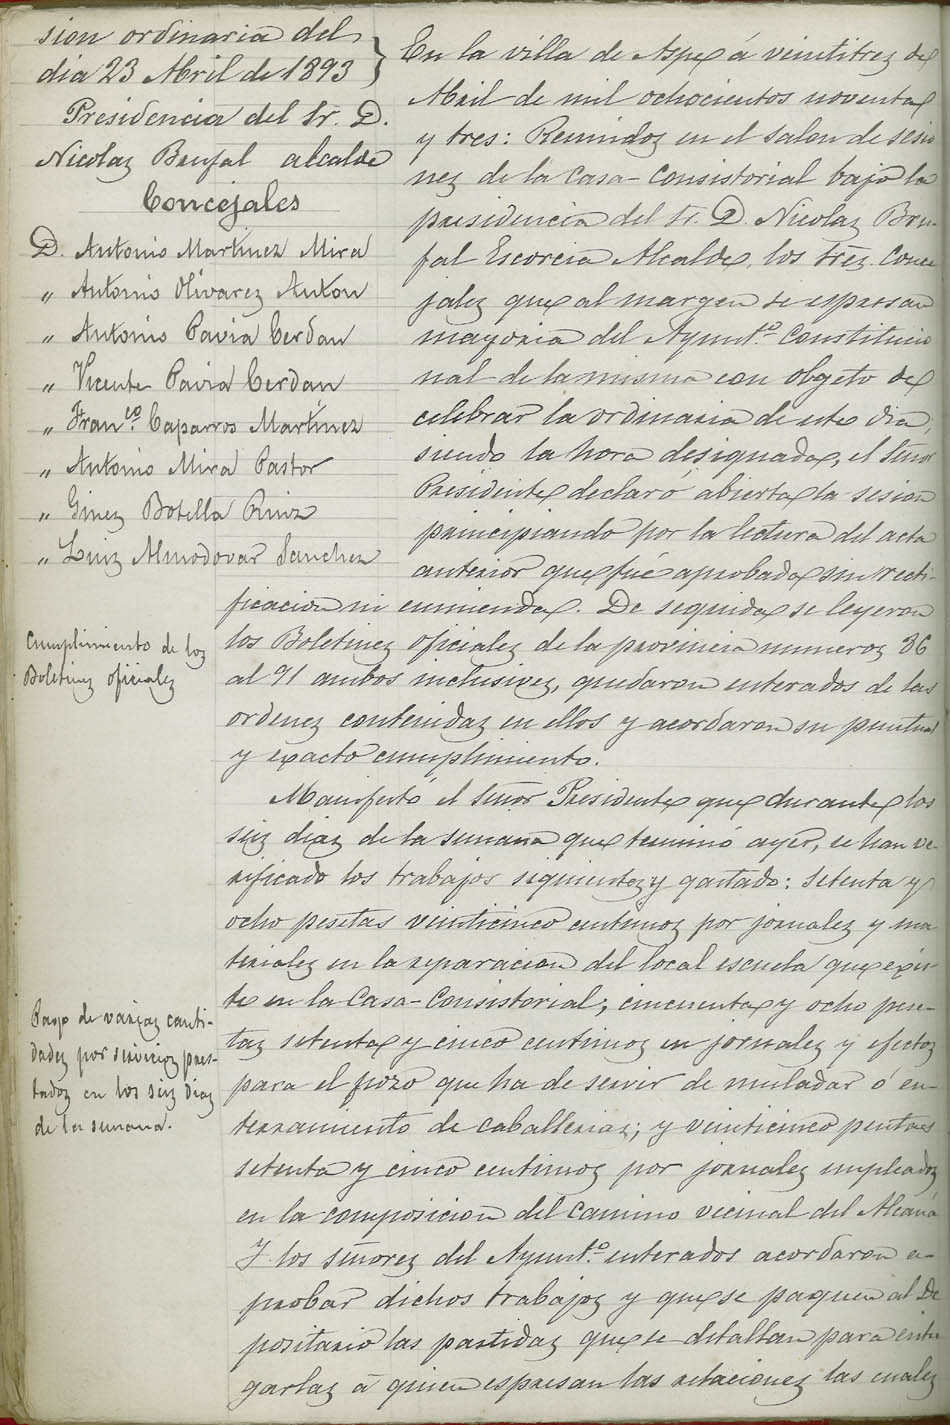 sion ordinaria del
dia 23 Abril de 1893
Presidencia del Sr. D.
Nicolaz Brufal alcalde
Concejales
D. Antonio Martinez Mira
" Antonio Olivarez Anton
" Antonio Pavia Cerdan
" Vicente Pavia Cerdan
" Franco. Caparros Martinez
" Antonio Mira Pastor
" Ginez Botella Ruiz
" Luiz Almodovar Sanchez
En la villa de Aspe á veintitrez de
Abril de mil ochocientos noventa
y tres: Reunidoz en el salon de sesio
nez de la Casa-Consistorial bajo la
presidencia del Sr. D. Nicolaz Bru-
fal Escorcia Alcalde, los Srez. Conce
jalez que al margen se espresan
mayoria del Ayunto. Constitucio
nal de la misma con objeto de
celebrar la ordinaria de este dia;
siendo la hora designada, el Señor
Presidente declaró abierta la sesion
principiando por la lectura del acta
anterior que fué aprobada sin recti-
ficacion ni enmienda. De seguida se leyeron
los Boletinez oficialez de la provincia numeroz 86
al 91 ambos inclusivez, quedaron enterados de las
ordenez contenidaz en ellos y acordaron su puntual
y exacto cumplimiento.
Cumplimiento de loz
Boletinez oficialez
Manifestó el Señor Presidente que durante los
seiz diaz de la semana que terminó ayer, se han ve-
rificado los trabajos siguientez y gastado: Setenta y
ocho pesetas veinticinco centimoz por jornalez y ma
terialez en la reparacion del local escuela que exis-
te en la Casa-Consistorial; cincuenta y ocho pese-
taz setenta y cinco centimoz en jornalez y efectoz
para el pozo que ha de servir de muladar ó en-
terramiento de caballeriaz; y veinticinco pesetas
setenta y cinco centimoz por jornalez empleadoz
en la composicion del camino vicinal del Alcaná
Y los señorez del Ayunto. enterados acordaron a-
probar dichos trabajoz y que se paguen al De
positario las partidaz que se detallan para entre
garlaz á quien espresan las relacionez las cualez
Pago de variaz canti-
dadez por servicioz pres-
tadoz en los seiz diaz
de la semana.